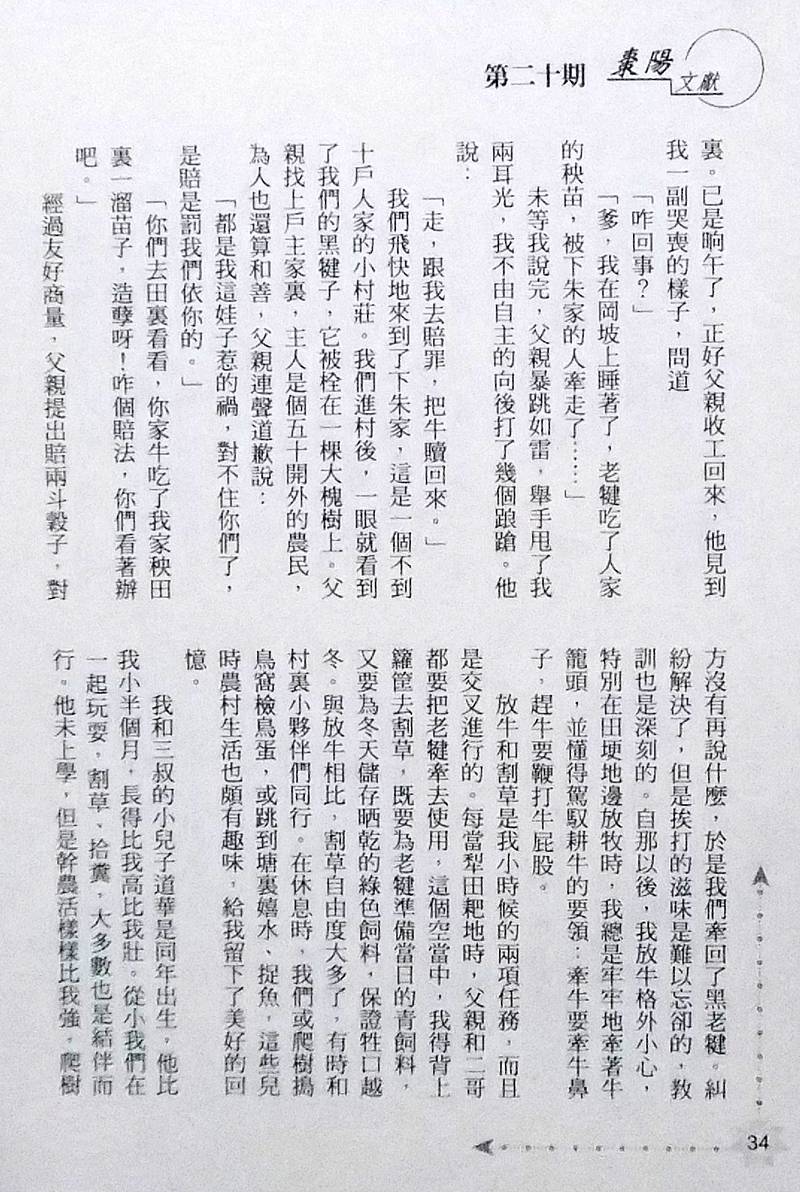 棗陽文獻
第二十期
裏。已是晌午了，正好父親收工回來，他見到
我一副哭喪的樣子，問道
「咋回事？」
「爹，我在岡坡上睡著了，老犍吃了人家
的秧苗，被下朱家的人牽走了……」
未等我說完，父親暴跳如雷，舉手甩了我
兩耳光，我不由自主的向後打了幾個踉蹌。他
說：
「走，跟我去賠罪，把牛贖回來。」
我們飛快地來到了下朱家，這是一個不到
十戶人家的小村莊。我們進村後，一眼就看到
了我們的黑犍子，它被栓在一棵大槐樹上。父
親找上戶主家裏，主人是個五十開外的農民，
為人也還算和善，父親連聲道歉說：
「都是我這娃子惹的禍，對不住你們了，
是賠是罰我們依你的。」
「你們去田裏看看，你家牛吃了我家秧田
裏一溜苗子，造孽呀！咋個賠法，你們看著辦
吧。」
經過友好商量，父親提出賠兩斗穀子，對
方沒有再說什麼，於是我們牽回了黑老犍。糾
紛解決了，但是挨打的滋味是難以忘卻的，教
訓也是深刻的。自那以後，我放牛格外小心，
特別在田埂地邊放牧時，我總是牢牢地牽著牛
籠頭，並懂得駕馭耕牛的要領：牽牛要牽牛鼻
子，趕牛要鞭打牛屁股。
放牛和割草是我小時候的兩項任務，而且
是交叉進行的。每當犁田耙地時，父親和二哥
都要把老犍牽去使用，這個空當中，我得背上
籮筐去割草，既要為老犍準備當日的青飼料，
又要為冬天儲存晒乾的綠色飼料，保證牲口越
冬。與放牛相比，割草自由度大多了，有時和
村裏小夥伴們同行。在休息時，我們或爬樹搗
鳥窩檢鳥蛋，或跳到塘裏嬉水、捉魚，這些兒
時農村生活也頗有趣味，給我留下了美好的回
憶。
我和三叔的小兒子道華是同年出生，他比
我小半個月，長得比我高比我壯。從小我們在
一起玩耍，割草、拾糞，大多數也是結伴而
行。他未上學，但是幹農活樣樣比我強，爬樹
34